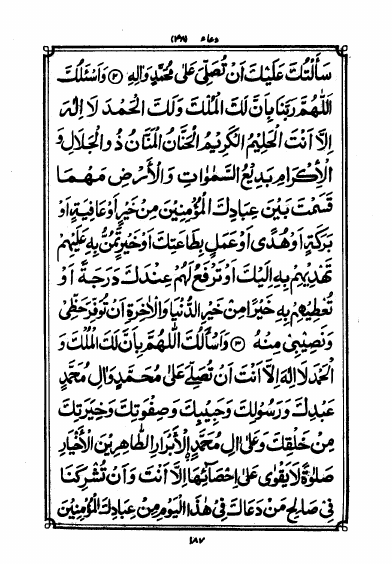 دعاء (۴۸)
سَأَلْتُكَ عَلَيْكَ اَنْ تُصَلِّيَ عَلٰى مُحَمَّدٍ وَاٰلِهِ ﴿۲﴾ وَاَسْئَلُكَ
اللّٰهُمَّ رَبَّنَا بِاَنَّ لَكَ الْمُلْكَ وَلَكَ الْحَمْدَ لَا اِلٰهَ
اِلَّا اَنْتَ الْحَلِيْمُ الْكَرِيْمُ الْحَنَّانُ الْمَنَّانُ ذُو الْجَلَالِ وَ
الْاِكْرَامِ بَدِيْعُ السَّمٰوَاتِ وَالْاَرْضِ مَهْمَا
قَسَمْتَ بَيْنَ عِبَادِكَ الْمُؤْمِنِيْنَ مِنْ خَيْرٍ اَوْ عَافِيَةٍ اَوْ
بَرَكَةٍ اَوْ هُدًى اَوْ عَمَلٍ بِطَاعَتِكَ اَوْ خَيْرٍ تَمُنُّ بِهِ عَلَيْهِمْ
تَهْدِيْهِمْ بِهِ اِلَيْكَ اَوْ تَرْفَعُ لَهُمْ عِنْدَكَ دَرَجَةً اَوْ
تُعْطِيْهِمْ بِهِ خَيْرًا مِنْ خَيْرِ الدُّنْيَا وَالْاٰخِرَةِ اَنْ تُوَفِّرَ حَظِّيْ
وَنَصِيْبِيْ مِنْهُ ﴿۳﴾ وَاَسْأَلُكَ اللّٰهُمَّ بِاَنَّ لَكَ الْمُلْكَ وَ
الْحَمْدَ لَا اِلٰهَ اِلَّا اَنْتَ اَنْ تُصَلِّيَ عَلٰى مُحَمَّدٍ وَاٰلِ مُحَمَّدٍ
عَبْدِكَ وَرَسُوْلِكَ وَحَبِيْبِكَ وَصِفْوَتِكَ وَخِيَرَتِكَ
مِنْ خَلْقِكَ وَعَلٰى اٰلِ مُحَمَّدٍ الْاَبْرَارِ الطَّاهِرِيْنَ الْاَخْيَارِ
صَلٰوةً لَا يَقْوٰى عَلٰى اِحْصَائِهَا اِلَّا اَنْتَ وَاَنْ تُشْرِكَنَا
فِيْ صَالِحِ مَنْ دَعَاكَ فِيْ هٰذَا الْيَوْمِ مِنْ عِبَادِكَ الْمُؤْمِنِيْنَ
۱۸۷